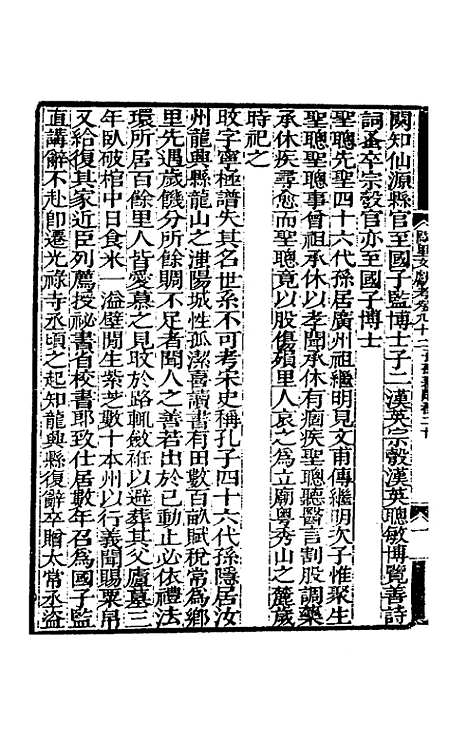 闕知仙源縣官至國子監博士子二漢英宗彀漢英聰敏博覽善詩
詞蚤卒宗彀官亦至國子博士
聖聰先聖四十六代孫居廣州祖繼明見文甫傳繼明次子惟聚生
聖聰聖聰事曾祖承休以孝聞承休有痼疾聖聰聽醫言割股調藥
承休疾尋愈而聖聰竟以股傷殞里人哀之為立廟粵秀山之麓歲
時祀之
旼字寧極譜失其名世系不可考宋史稱孔子四十六代孫隱居汝
州龍興縣龍山之滍陽城性孤潔喜讀書有田數百畝賦稅常為鄉
里先遇歲饑分所餘賙不足者聞人之善若出於已動止必依禮法
環所居百餘里人皆愛慕之見旼於路輒斂袵以避葬其父廬墓三
年臥破棺中日食米一溢壁間生紫芝數十本州以行義聞賜粟帛
又給復其家近臣列薦授祕書省校書郎致仕居數年召為國子監
直講辭不赴即遷光祿寺丞頃之起知龍興縣復辭卒贈太常丞盜